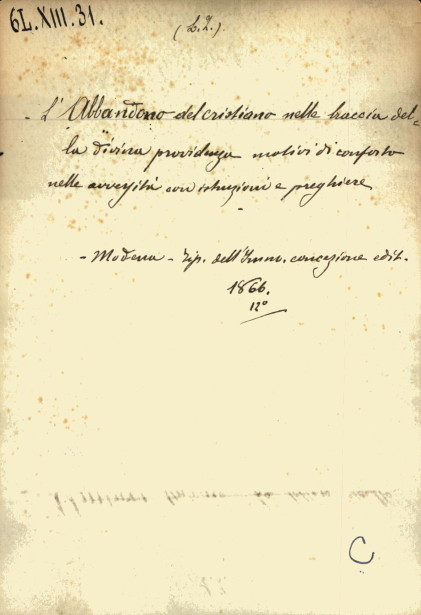 6L.XIII.31.
L'Abbandono del cristiano nelle braccia del-
la divina providenza motivi di conforto
nelle avversità con istruzioni e preghiere
- Modena - Tip. dell'Imm. concezione edit.
1866.
12º
C